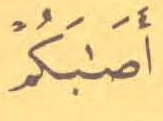 أَصَـٰبَكُمْ